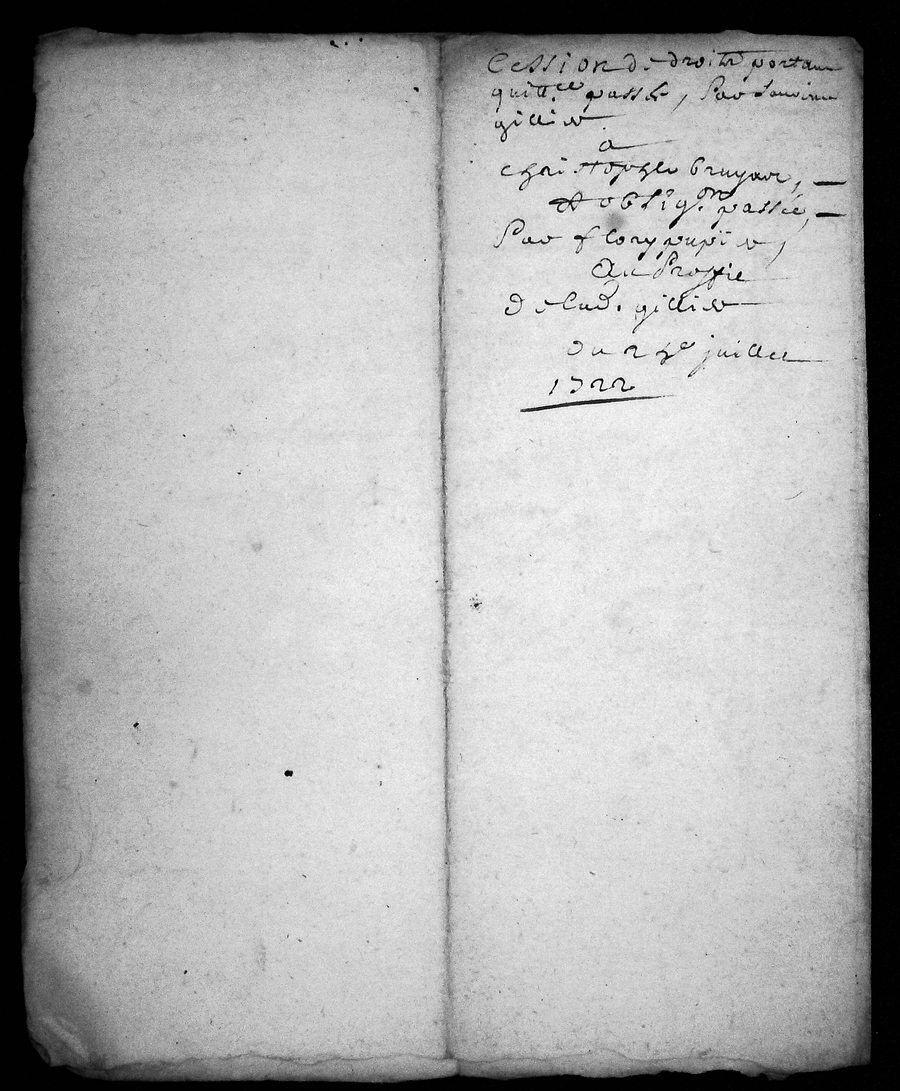 Cession de droitz portant
quitt.ce passée, Par
gillier
a
christophle bruyare,
et oblig.on passée,
Par flory pupier,
Au Proffit
Delad. gillier
Du 24e juillet
1722